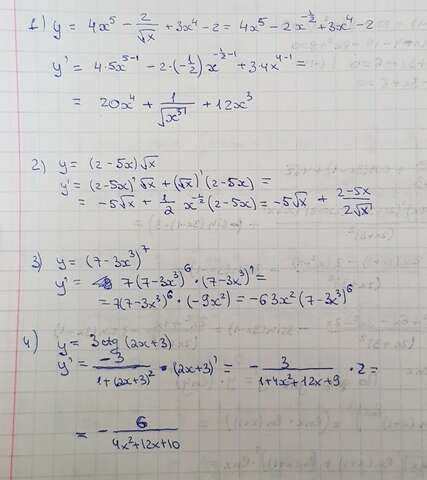 1) y = 4x⁵ - 2/√x + 3x⁴ - 2 = 4x⁵ - 2x^(-1/2) + 3x⁴ - 2
y' = 4·5x^(5-1) - 2·(-1/2)x^(-1/2-1) + 3·4x^(4-1) =
= 20x⁴ + 1/√x³ + 12x³
2) y = (2-5x)√x
y' = (2-5x)'√x + (√x)'(2-5x) =
= -5√x + 1/2 x^(-1/2)(2-5x) = -5√x + (2-5x)/(2√x)
3) y = (7-3x³)⁷
y' = 7(7-3x³)⁶ · (7-3x³)' =
= 7(7-3x³)⁶ · (-9x²) = -63x²(7-3x³)⁶
4) y = 3ctg(2x+3)
y' = -3/(1+(2x+3)²) · (2x+3)' = - 3/(1+4x²+12x+9) · 2 =
= - 6/(4x²+12x+10)